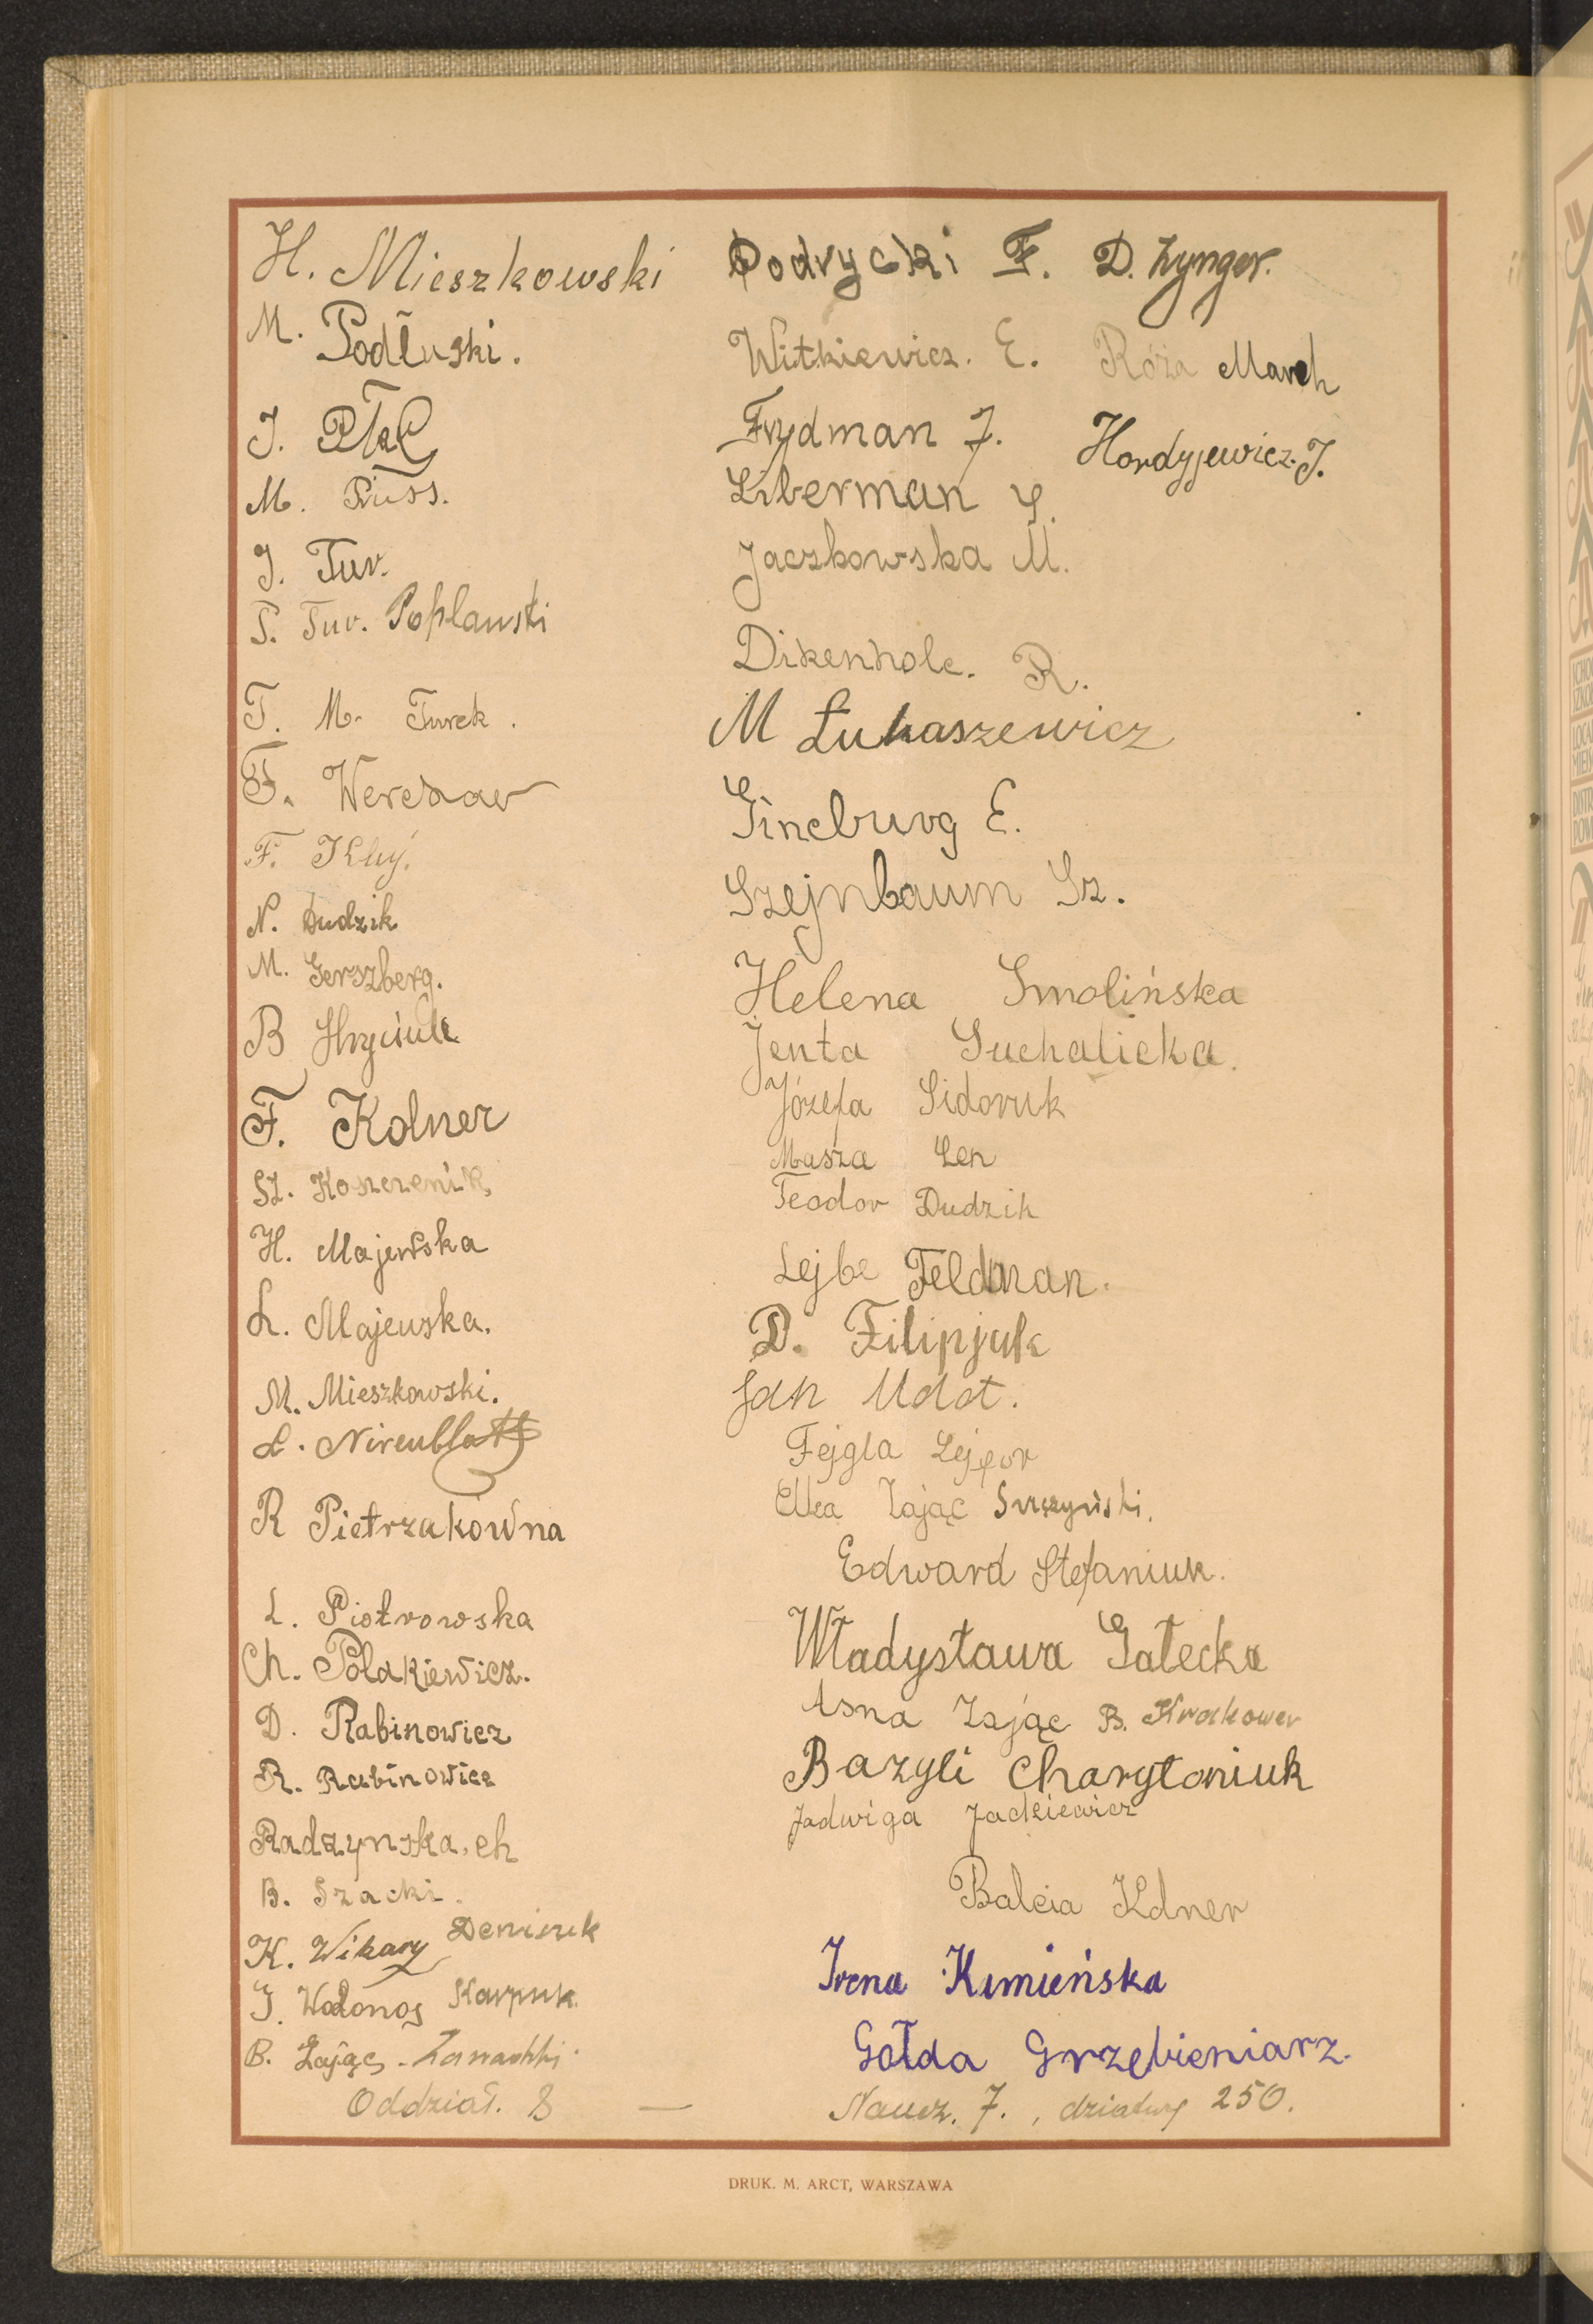 H. Mieszkowski
M. Podluski.
J. Ptak
M. Pruss.
J. Tur.
S. Tur. Popławski
T. M. Turek.
F.
F. Kluj.
N. Dudzik
M. Gerszberg.
B Hryciuk
F. Kolner
Sz. Koszczenik
H. Majewska
L. Majewska.
M. Mieszkowski.
L. Nirenblatt
R Pietrzakówna
L. Piotrowska
Ch. Polakiewicz.
D. Rabinowicz
R. Rabinowicz
Radzynska. ch
B. Szacki.
K. Wikary Deniszuk
J. Wołonos Karpuk.
B. Zając - Zawadzki.
Oddział. 8 —
Podrycki F. D. Zynger.
Witkiewicz. E. Róża March
Frydman J. Hordyjewicz. J.
Liberman
Jaczkowska M.
Dikenholc. R.
M Łukaszewicz
Gincburg E.
Szejnbaum Sz.
Helena Smolińska
Jenta Suchalicka.
Józefa Sidoruk
Masza Len
Teodor Dudzik
Lejbe Feldman.
D. Filipjuk
Jan Udot.
Fejgla
Elka Zając
Edward Stefaniuk.
Władysława Gałecka
Asna Zając B. Krakower
Bazyli Charytoniuk
Jadwiga Jackiewicz
Balcia Kolner
Irena Kimieńska
Gołda Grzebieniarz.
Naucz. 7., dziatwy 250.
DRUK. M. ARCT, WARSZAWA